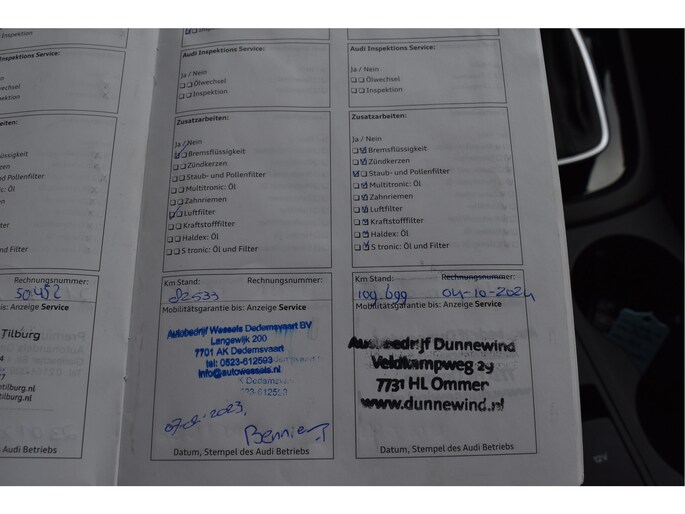 nspektions Service:
wechsel
pektion
arbeiten:
emsflüssigkeit
ndkerzen
ub- und Pollenfilter
titronic: Öl
nriemen
lter
stofffilter
x: Öl
nic: Öl und Filter
Rechnungsnummer:
50.452
is: Anzeige Service
Tilburg
tilburg.nl
Audi Betriebs
Inspektion
Audi Inspektions Service:
Ja / Nein
Ölwechsel
Inspektion
Zusatzarbeiten:
Ja / Nein
Bremsflüssigkeit
Zündkerzen
Staub- und Pollenfilter
Multitronic: Öl
Zahnriemen
Luftfilter
Kraftstofffilter
Haldex: Öl
S tronic: Öl und Filter
Km Stand: Rechnungsnummer:
82533
Mobilitätsgarantie bis: Anzeige Service
Autobedrijf Wessels Dedemsvaart BV
Langewijk 200
7701 AK Dedemsvaart
tel: 0523-612593
info@autowessels.nl
Datum, Stempel des Audi Betriebs
Audi Inspektions Service:
Ja / Nein
Ölwechsel
Inspektion
Zusatzarbeiten:
Ja / Nein
Bremsflüssigkeit
Zündkerzen
Staub- und Pollenfilter
Multitronic: Öl
Zahnriemen
Luftfilter
Kraftstofffilter
Haldex: Öl
S tronic: Öl und Filter
Km Stand: Rechnungsnummer:
109.699 04-10-2024
Mobilitätsgarantie bis: Anzeige Service
Autobedrijf Dunnewind
Veldkampweg 29
7731 HL Ommen
www.dunnewind.nl
Datum, Stempel des Audi Betriebs
12V